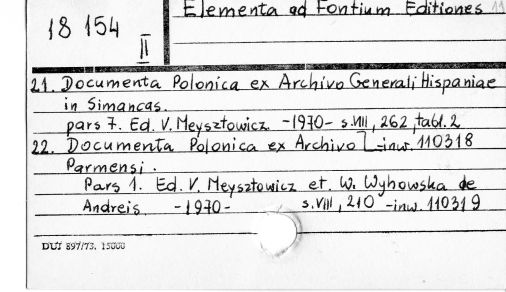 Elementa ad Fontium Editiones 11
18 154
II
21. Documenta Polonica ex Archivo Generali Hispaniae
in Simancas.
pars 7. Ed. V. Meysztowicz -1970- s. VIII, 262, tabl. 2
22. Documenta Polonica ex Archivo -inw. 110318
Parmensi.
Pars 1. Ed. V. Meysztowicz et. W. Wyhowska de
Andreis -1970- s. VIII, 210 -inw. 110319
DUJ 897/73. 15000